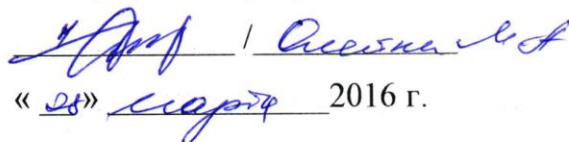 / Олейник М А
« 28» марта 2016 г.